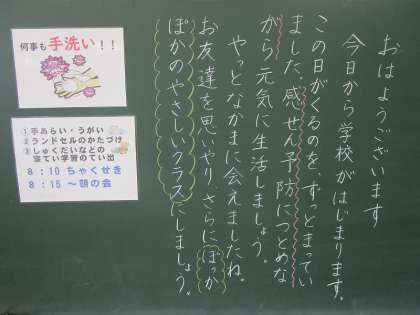 おはようございます
今日から学校がはじまります。
この日がくるのを、ずっとまってい
ました。感せん予防につとめな
がら元気に生活しましょう。
やっとなかまに会えましたね。
お友達を思いやり、さらにぽっか
ぽかのやさしいクラスにしましょう。
何事も手洗い!!
①手あらい・うがい
②ランドセルのかたづけ
③しゅくだいなどの
寝てい学習のてい出
8:10 ちゃくせき
8:15 ~朝の会